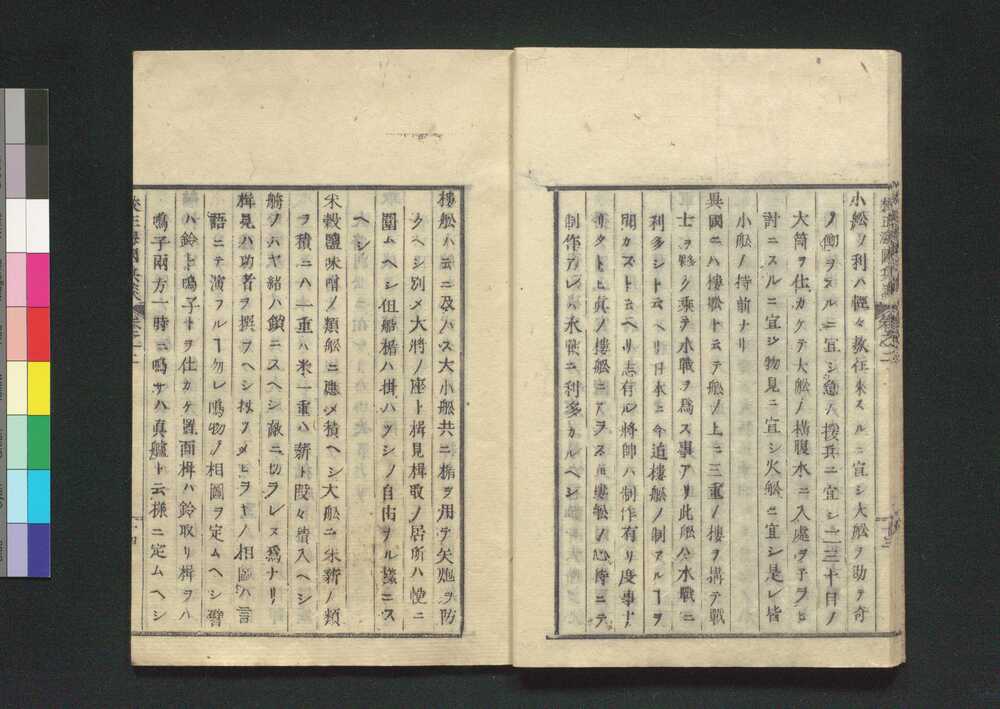 小舩ノ利ハ輕々敷往来スルニ宜シ大舩ヲ助テ奇
ノ働ヲスルニ宜シ急ノ援兵ニ宜シ二三十目ノ
大筒ヲ仕カケテ大舩ノ横腹水ニ入處ヲ子ラヒ
討ニスルニ宜シ物見ニ宜シ火舩ニ宜シ是レ皆
小舩ノ持前ナリ
異國ニハ樓舩ト云テ舩ノ上ニ三重ノ樓ヲ搆テ戰
士ヲ夥ク乗テ水戰ヲ爲ス事アリ此舩公水戰ニ
利多シト云ヘリ日本ニ今迠樓舩ノ制アルヿヲ
聞カスト云ヘリ志有ル將帥ハ制作有リ度事ナ
リタトヒ真ノ樓舩ニアラス𪜈樓舩ノ心持ニテ
制作アレハ水戰ニ利多カルベシ
樓舩ハ云ニ及ハス大小舩共ニ楯ヲ用テ矢炮ヲ防
クヘシ別メ大將ノ座ト楫見楫取ノ居所ハ慥ニ
圍ムヘシ但艪楯ハ掛ハツシノ自由ナル様ニス
ヘシ
米穀鹽味噌ノ類舩ニ應メ積ヘシ大舩ニ米薪ノ類
ヲ積ニハ一重ハ米一重ハ薪ト段々積入ヘシ
舩ノハヤ緒ハ鎖ニスヘシ敵ニ切ラレヌ爲ナリ
楫見ハ功者ヲ撰フヘシ扨ヲメヒラキノ相圖ハ言
語ニテ演フルヿ勿レ鳴物ノ相圖ヲ定ムヘシ譬
ハ鈴ト鳴子トヲ仕カケ置面楫ハ鈴取リ楫ヲハ
鳴子兩方一時ニ鳴サハ真艫ト云様ニ定ムヘシ